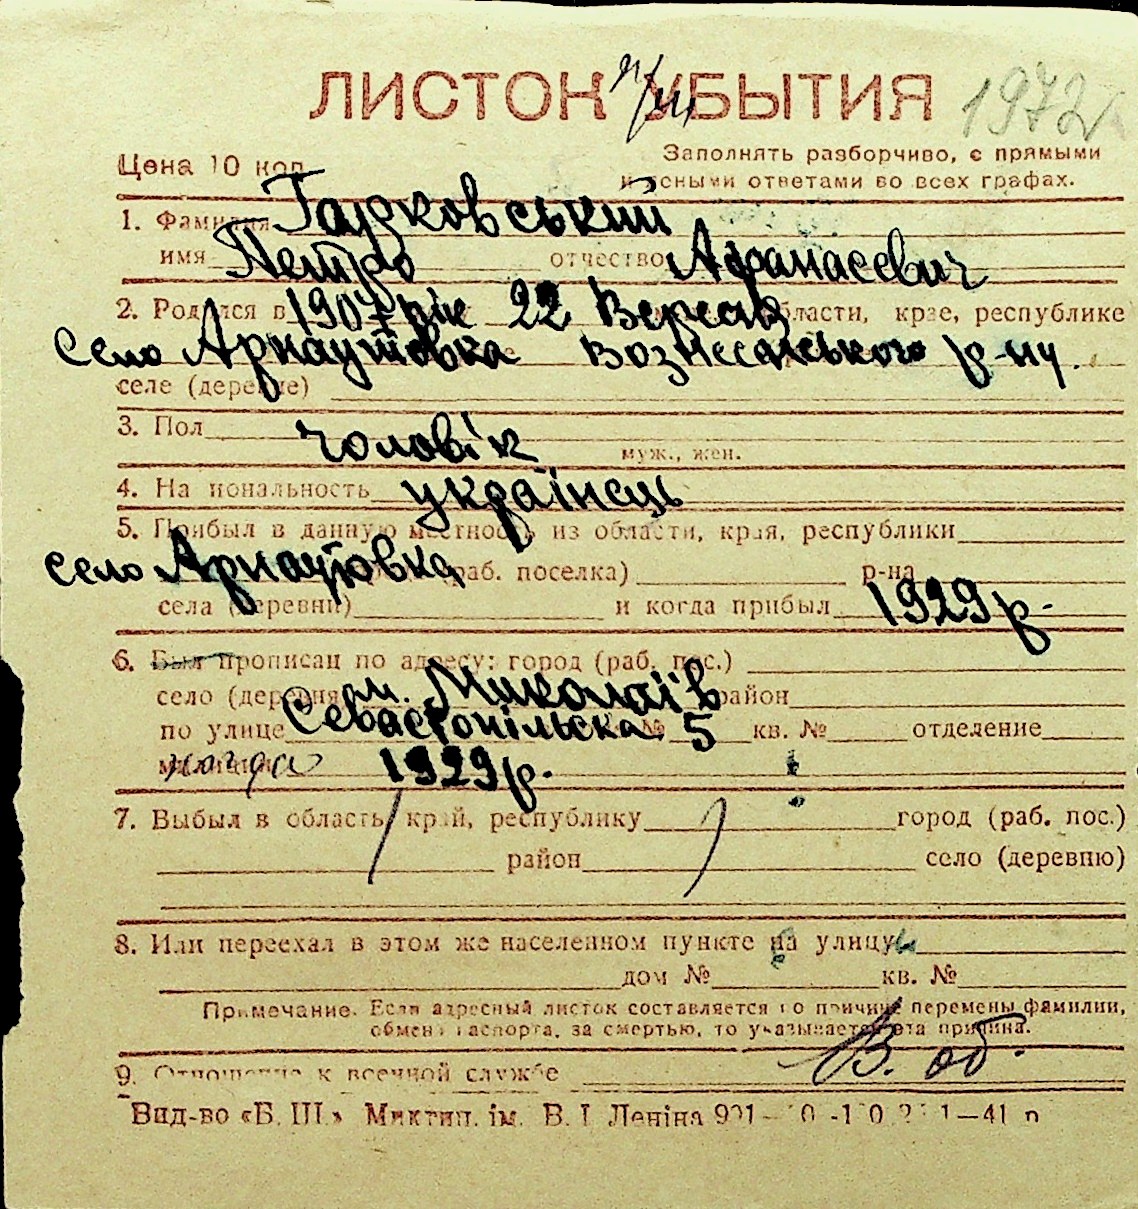 ЛИСТОК УБЫТИЯ 1972
Цена 10 коп.
Заполнять разборчиво, с прямыми
и ясными ответами во всех графах.
1. Фамилия
имя Петро отчество Афанасевич
2. Родился в 1907 рік 22 Вересня области, крае, республике
село Арнаутовка Вознесенського р-ну.
селе (деревне)
3. Пол чоловік муж., жен.
4. Национальность українець
5. Прибыл в данную местность из области, края, республики
село Арнаутовка (раб. поселка) р-на
села (деревни) и когда прибыл 1929 р.
6. Был прописан по адресу: город (раб. пос.)
село (деревня) м. Миколаїв район
по улице Севастопільська № 5 кв. № отделение
милиции 1929 р.
7. Выбыл в область, край, республику город (раб. пос.)
район село (деревню)
8. Или переехал в этом же населенном пункте на улицу
дом № кв. №
Примечание. Если адресный листок составляется по причине перемены фамилии,
обмена паспорта, за смертью, то указывается эта причина.
В. об.
9. Отношение к военной службе
Вид-во «Б. Ш.» Миктип. ім. В. І Леніна